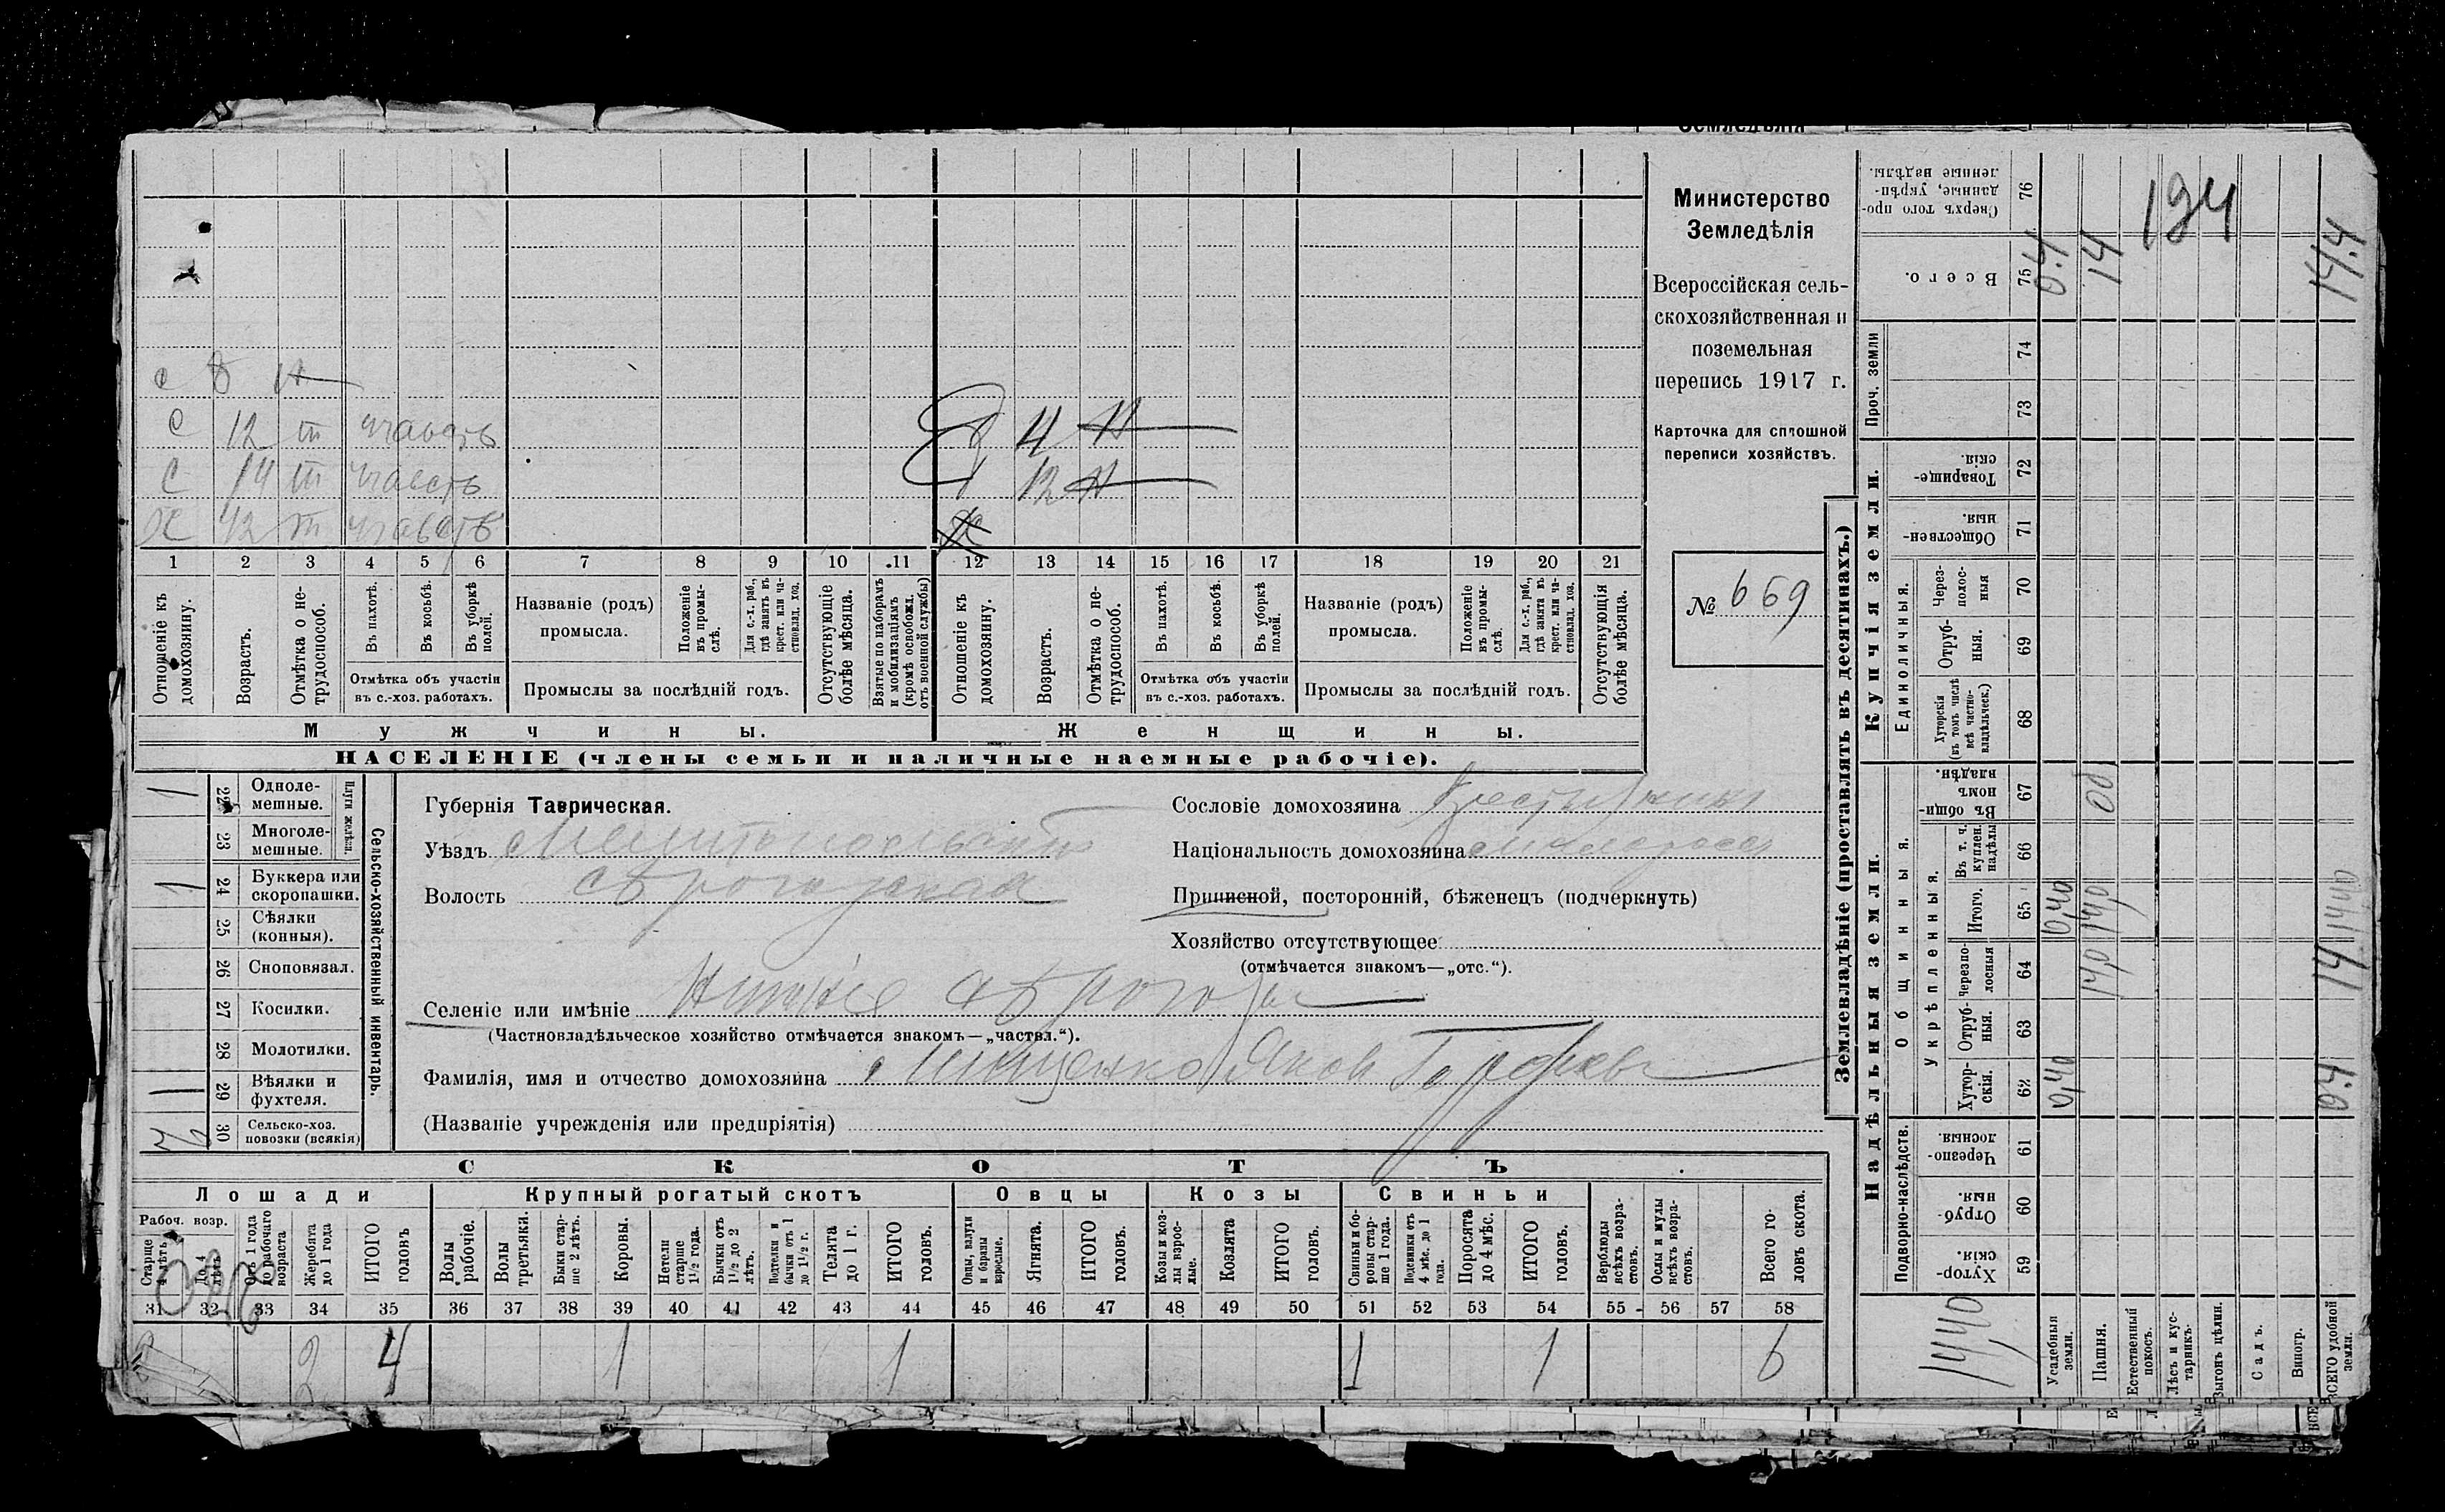 Министерство
Земледѣлія
Всероссійская сель-
скохозяйственная и
поземельная
перепись 1917 г.
Карточка для сплошной
переписи хозяйствъ.
№ 669
с 8 н
с 12 п
с 14 п
Х 42 п
4 н
12 н
1 2 3 4 5 6 7 8 9 10 11 12 13 14 15 16 17 18 19 20 21
Отношеніе къ домохозяину.
Возрастъ.
Отмѣтка о не-трудоспособ.
Въ пахотѣ.
Въ косьбѣ.
Въ уборкѣ полей.
Отмѣтка объ участіи
въ с.-хоз. работахъ.
Названіе (родъ)
промысла.
Положеніе въ промы-слѣ.
Для с.-х. раб., гдѣ занятъ въ крест. или ча-стновлад. хоз.
Промыслы за послѣдній годъ.
Отсутствующіе болѣе мѣсяца.
Взятые по наборамъ и мобилизаціямъ (кромѣ освобожд. отъ военной службы)
Отношеніе къ домохозяину.
Возрастъ.
Отмѣтка о не-трудоспособ.
Въ пахотѣ.
Въ косьбѣ.
Въ уборкѣ полей.
Отмѣтка объ участіи
въ с.-хоз. работахъ.
Названіе (родъ)
промысла.
Положеніе въ промы-слѣ.
Для с.-х. раб., гдѣ занята въ крест. или ча-стновлад. хоз.
Промыслы за послѣдній годъ.
Отсутствующія болѣе мѣсяца.
Мужчины.
Женщины.
НАСЕЛЕНІЕ (члены семьи и наличные наемные рабочіе).
Сельско-хозяйственный инвентарь.
Плуги желѣзн.
1 22 Одноле-мешные.
23 Многоле-мешные.
1 24 Буккера или скоропашки.
25 Сѣялки (конныя).
26 Сноповязал.
27 Косилки.
28 Молотилки.
1 29 Вѣялки и фухтеля.
30 Сельско-хоз. повозки (всякія)
Губернія Таврическая.
Уѣздъ Мелитопольский
Волость Сѣрогозская
Селеніе или имѣніе Нижніе Сѣрогозы
(Частновладѣльческое хозяйство отмѣчается знакомъ—„частвл.“).
Фамилія, имя и отчество домохозяина Яков
(Названіе учрежденія или предпріятія)
Сословіе домохозяина
Національность домохозяина малоросс
Приписной, посторонній, бѣженецъ (подчеркнуть)
Хозяйство отсутствующее
(отмѣчается знакомъ—„отс.“).
СКОТЪ
Лошади
Рабоч. возр.
Старше 4 лѣтъ
До 4 лѣтъ
Отъ 1 года до рабочаго возраста
Жеребята до 1 года
ИТОГО головъ
Крупный рогатый скотъ
Волы рабочіе.
Волы третьяки.
Быки стар-ше 2 лѣтъ.
Коровы.
Нетели старше 1½ года.
Бычки отъ 1½ до 2 лѣтъ.
Подтелки и бычки отъ 1 до 1½ г.
Телята до 1 г.
ИТОГО головъ.
Овцы
Овцы, валухи и бараны взрослые.
Ягнята.
ИТОГО головъ.
Козы
Козы и коз-лы взрос-лые.
Козлята
ИТОГО головъ.
Свиньи
Свиньи и бо-ровы стар-ше 1 года.
Подсвинки отъ 4 мѣс. до 1 года.
Поросята до 4 мѣс.
ИТОГО головъ.
Верблюды всѣхъ возра-стовъ.
Ослы и мулы всѣхъ возра-стовъ.
Всего го-ловъ скота.
31 32 33 34 35 36 37 38 39 40 41 42 43 44 45 46 47 48 49 50 51 52 53 54 55 56 57 58
2 4 1 1 1 1 6
Землевладѣніе (проставлять въ десятинахъ.)
Надѣльныя земли.
Купчія земли.
Проч. земли
Подворно-наслѣдств.
Общинныя.
Укрѣпленныя.
Единоличныя.
Сверхъ того про-данные, укрѣп-ленные надѣлы. 76
Всего. 75 0.4 14 14.4
194
74
73
Товарище-скія. 72
Обществен-ныя. 71
Через-полос-ныя 70
Отруб-ныя. 69
Хуторскія (въ томъ числѣ всѣ частно-владѣльческ.) 68
Въ общин-номъ владѣн. 67 об
Въ т. ч. куплен. надѣлы 66
Итого. 65 0,40 14,0 14 40
Черезпо-лосныя 64 14,0 14
Отруб-ныя. 63
Хутор-скія. 62 0,40 0.4
Черезпо-лосныя. 61
Отруб-ныя. 60
Хутор-скія. 59
14,40
Усадебныя земли.
Пашня.
Естественный покосъ.
Лѣсъ и кус-тарникъ.
Выгонъ цѣлин.
Садъ.
Виногр.
ВСЕГО удобной земли.